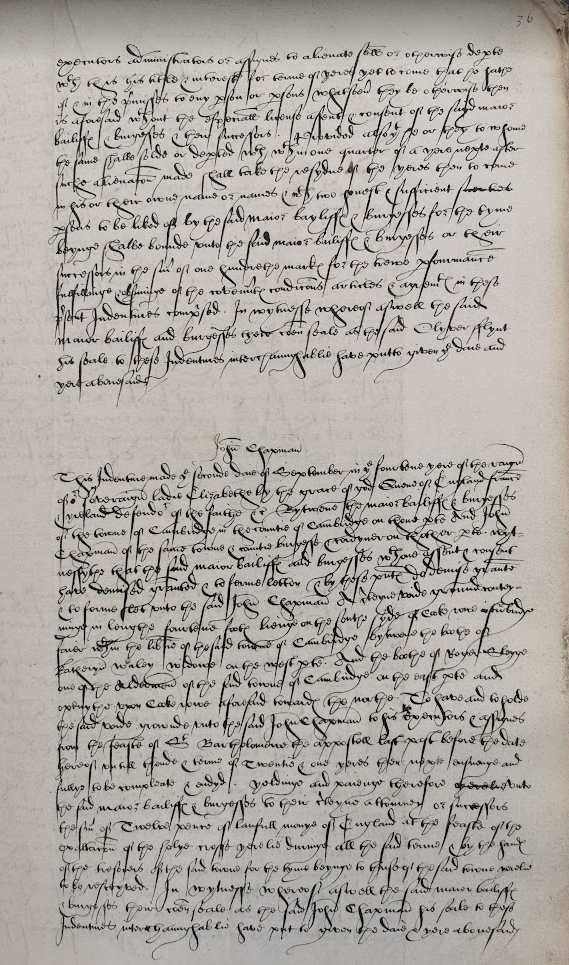 36
executors administrators or assignes to alienate sell or otherwise depte
wth this his title & interest for terme of yeres yet to come that he hathe
of & in the pmisses to eny pson or psons whatsoever they be otherwise then
is aforesaid wthout the especiall license assent & consent of the said maior
bailiffs & burgesses & their successors. Provided also yt he or they to whome
the same shalbe solde or depted wth wthin one quarter of a yere nexte after
suche alienacon made shall take the resydue of the yeres then to come
in his or their owne name or names & wth two honest & sufficient
psons to be liked of by the said maior bayliffs & burgesses for the tyme
beynge shalbe bounde unto the said maior bailiffs & burgesses or their
successors in the sum of one hundrethe marks for the trewe pformance
fulfillinge & of the covennts condicons articles & agremts in these
psent Indentures comprised. In wytnesse whereof aswell the said
maior bailiffs and burgesses their comen seale as the said Olyver Flynt
his seale to these Indentures interchaunghablie have putto geven ye daie and
yere abovesaid
John Chapman
This Indenture made ye seconde daie of September in ye fourtene yere of the raigne
of or sovereaigne ladie Elizabethe by the grace of god Quene of England France
& Ireland defendor of the faithe &c Bytwene the maior bailiffs & burgesses
of the towne of Cambridge in the countie of Cambridge on thone pte And John
Chapman of the same towne & countie burgesse & on thother pte wyt-
nessythe that the said maior bailiffs and burgesses wth one assent & consent
have demised graunted & to ferme letten & by these psnts do demise graunte
& to ferme lett unto the said John Chapman A voide grounde conteyn-
inge in lengthe fourtene foote lienge on the southe syde of Coke rowe in Sturbridge
faier wthin the liberties of the said towne of Cambridge bytwene the bothe of
Katheryn wydowe on the west pte And the bothe of Roger Slegge
one of the Aldermen of the said towne of Cambridge on the east pte and
openythe upon Coke rowe aforesaid towards the northe To have and to holde
the said voide grounde unto the said John Chapman to his Executors & assignes
from the feaste of St Bartholomewe the appostell last past before the date
hereof untill thende & terme of Twentie & one yeres then nexte ensuynge and
fullye to be compleate & endyd. yeldinge and paienge therefore yerelie unto
the said maior bailiffs & burgesses to their attorney or successors
the sum of Twelve pence of laufull monye of England at the feaste of the
exaltacon of the holye crosse yerelie duringe all the said terme & by the hands
of the tresorers of the said towne for the tyme beynge to thuse of the said towne yerelie
to be receyved. In wytnesse whereof aswell the said maior bailiffs
& burgesses their comen seale as the said John Chapman his seale to these
Indentures interchaunghablie have put to geven the daie & yere abovesaid